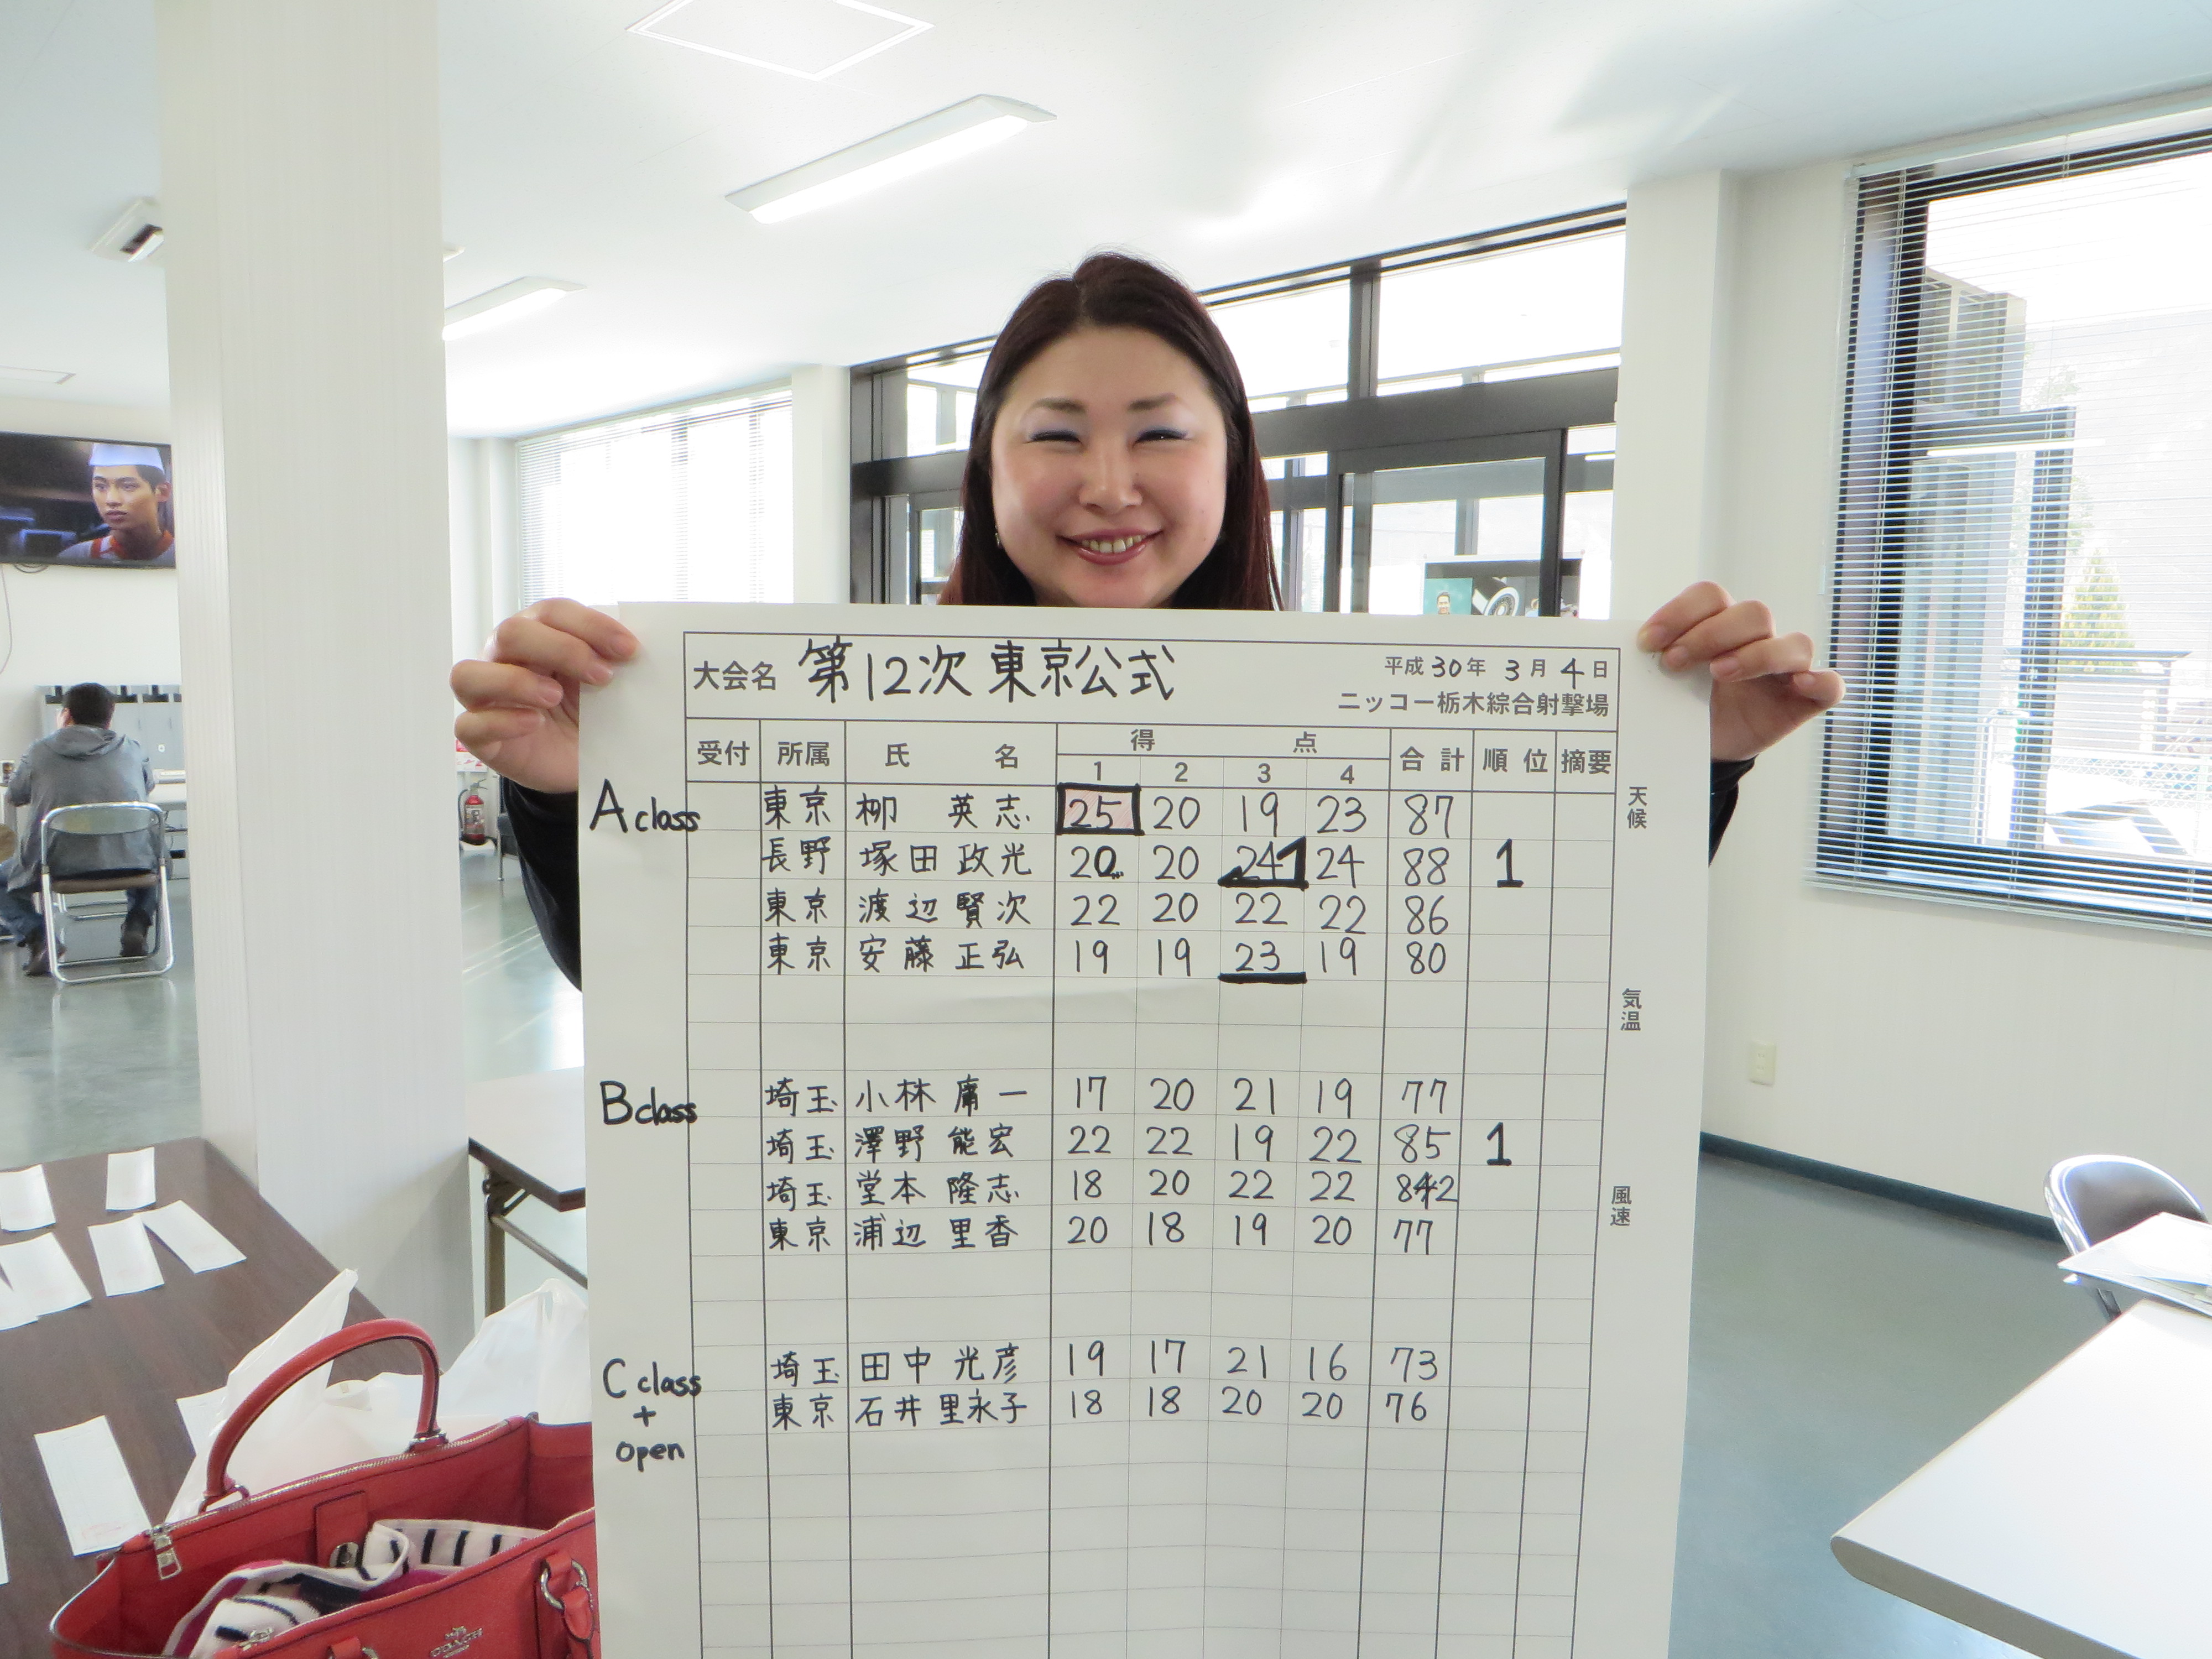 大会名 第12次 東京公式 平成30年 3月 4日
ニッコー栃木綜合射撃場
受付 所属 氏名 得点 合計 順位 摘要
1 2 3 4
天候
A class 東京 柳 英志 25 20 19 23 87
長野 塚田政光 20 20 24 24 88 1
東京 渡辺賢次 22 20 22 22 86
東京 安藤正弘 19 19 23 19 80
気温
B class 埼玉 小林庸一 17 20 21 19 77
埼玉 澤野能宏 22 22 19 22 85 1
埼玉 堂本隆志 18 20 22 22 82
風速
東京 浦辺里香 20 18 19 20 77
C class 埼玉 田中光彦 19 17 21 16 73
+ 東京 石井里永子 18 18 20 20 76
open
COACH